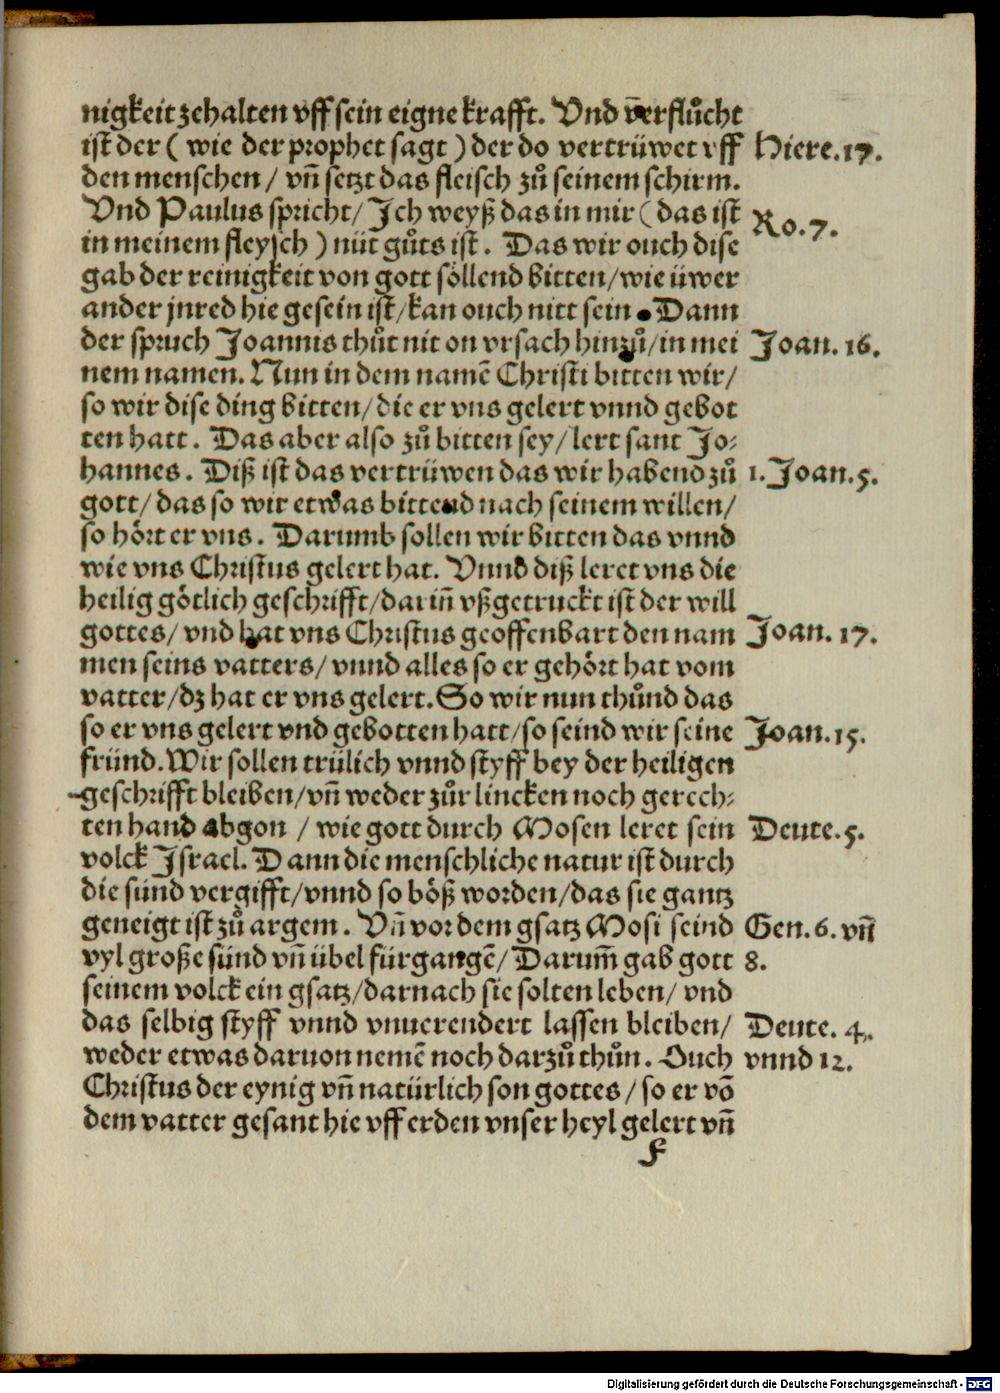 nigkeit zehalten vff sein eigne krafft. Vnd v̄erflůcht
ist der ( wie der prophet sagt ) der do vertrüwet vff Hiere. 17.
den menschen / vn̄ setzt das fleisch zů seinem schirm.
Vnd Paulus spricht/ Ich weyß das in mir ( das ist Ro. 7.
in meinem fleysch ) nüt gůts ist. Das wir ouch dise
gab der reinigkeit von gott söllend bitten/ wie üwer
ander jnred hie gesein ist/ kan ouch nitt sein. Dann
der spruch Joannis thůt nit on vrsach hinzů/ in mei Joan. 16.
nem namen. Nun in dem namē Christi bitten wir/
so wir dise ding bitten/ die er vns gelert vnnd gebot
ten hatt. Das aber also zů bitten sey/ lert sant Jo⸗
hannes. Diß ist das vertrüwen das wir habend zů 1. Joan. 5.
gott/ das so wir etwas bittend nach seinem willen/
so hört er vns. Darumb sollen wir bitten das vnnd
wie vns Christus gelert hat. Vnnd diß leret vns die
heilig götlich geschrifft/ darin̄ vßgetruckt ist der will
gottes/ vnd hat vns Christus geoffenbart den nam Joan. 17.
men seins vatters/ vnnd alles so er gehört hat vom
vatter/ dz hat er vns gelert. So wir nun thůnd das
so er vns gelert vnd gebotten hatt/ so seind wir seine Joan. 15.
fründ. Wir sollen trülich vnnd styff bey der heiligen
geschrifft bleiben/ vn̄ weder zůr lincken noch gerech⸗
ten hand abgon / wie gott durch Mosen leret sein Deute. 5.
volck Israel. Dann die menschliche natur ist durch
die sünd vergifft/ vnnd so böß worden/ das sie gantz
geneigt ist zů argem. Vn̄ vor dem gsatz Mosi seind Gen. 6. vn̄
vyl große sünd vn̄ übel fürgangē/ Darum̄ gab gott 8.
seinem volck ein gsatz/ darnach sie solten leben/ vnd
das selbig styff vnnd vnuerendert lassen bleiben/ Deute. 4.
weder etwas daruon nemē noch darzů thůn. Ouch vnnd 12.
Christus der eynig vn̄ natürlich son gottes/ so er vō
dem vatter gesant hie vff erden vnser heyl gelert vn̄
F
Digitalisierung gefördert durch die Deutsche Forschungsgemeinschaft - DFG